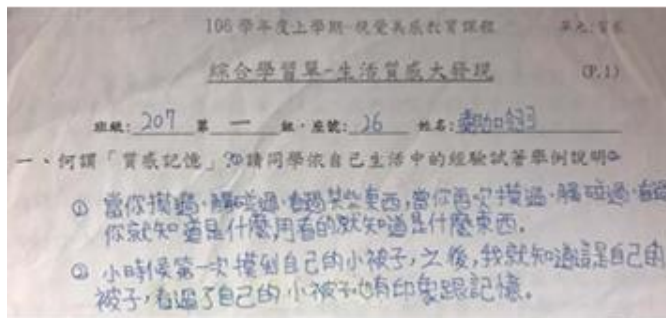 106學年度上學期-視覺美感教育課程 單元:質感
綜合學習單-生活質感大發現 (P.1)
班級: 207 第 一 組‧座號: 26 姓名:
一、何謂「質感記憶」?請同學依自己生活中的經驗試著舉例說明。
① 當你摸過、觸碰過、看過某些東西,當你再次摸過、觸碰過、看過
你就知道是什麼用看的就知道是什麼東西。
② 小時候第一次摸到自己的小被子,之後,我就知道這是自己的
被子,看過了自己的小被子也有印象跟記憶。